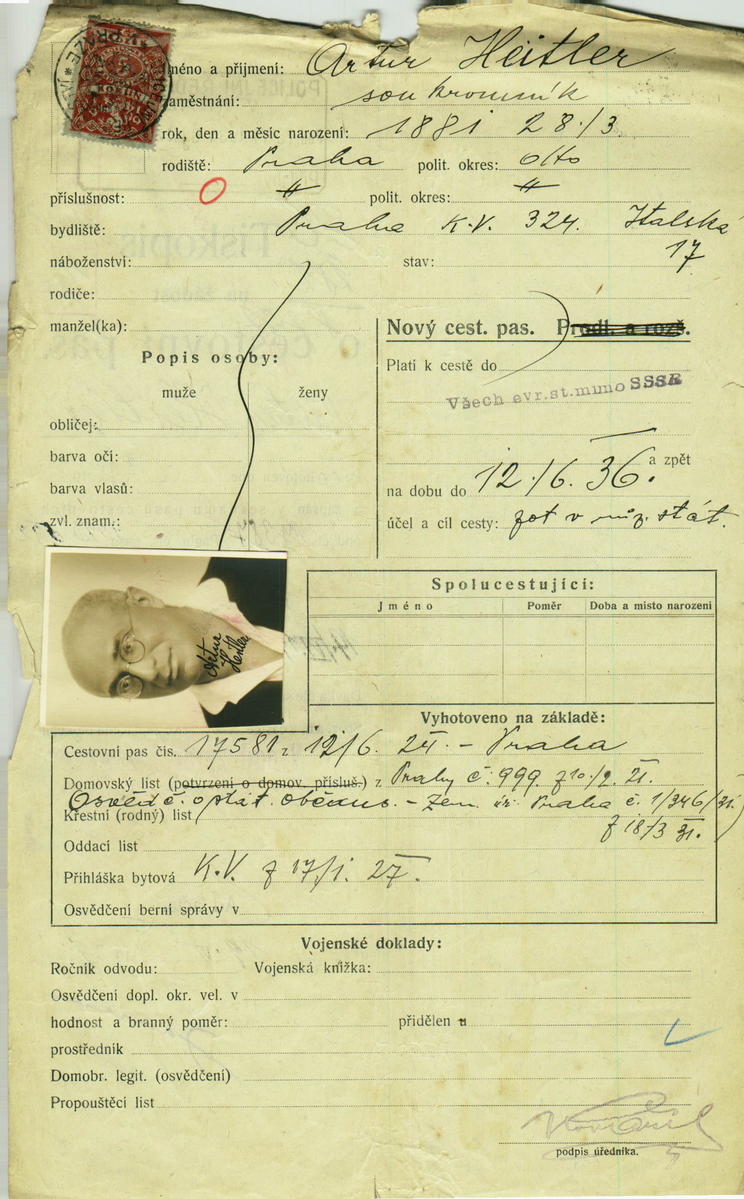 Jméno a příjmení: Artur Heitler
zaměstnání: soukromník
rok, den a měsíc narození: 1881 28./3.
rodiště: Praha polit. okres: dtto
příslušnost: # polit. okres: #
bydliště: Praha K.V. 324. Italská
17
náboženství: stav:
rodiče:
manžel(ka):
Nový cest. pas. Prodl. a rozš.
Popis osoby:
Platí k cestě do
muže ženy
Všech evr.st.mimo SSSR
obličej:
barva očí:
a zpět
barva vlasů:
na dobu do 12./6. 36.
zvl. znam.:
účel a cíl cesty: stát.
Artur
Heitler
Spolucestující:
Jméno Poměr Doba a místo narození
Vyhotoveno na základě:
Cestovní pas čís. 17581 z 12/6. - Praha
Domovský list (potvrzení o domov. přísluš.) z Prahy č. 999 21.
Osvědč. o stát. občans. - Zem. úř. Praha č. 1/346/31.
Křestní (rodný) list
z 18/3 31.
Oddací list
Přihláška bytová K.V. z 17/1. 27.
Osvědčení berní správy v
Vojenské doklady:
Ročník odvodu: Vojenská knížka:
Osvědčení dopl. okr. vel. v
hodnost a branný poměr: přidělen u
prostředník
Domobr. legit. (osvědčení)
Propouštěcí list
podpis úředníka.